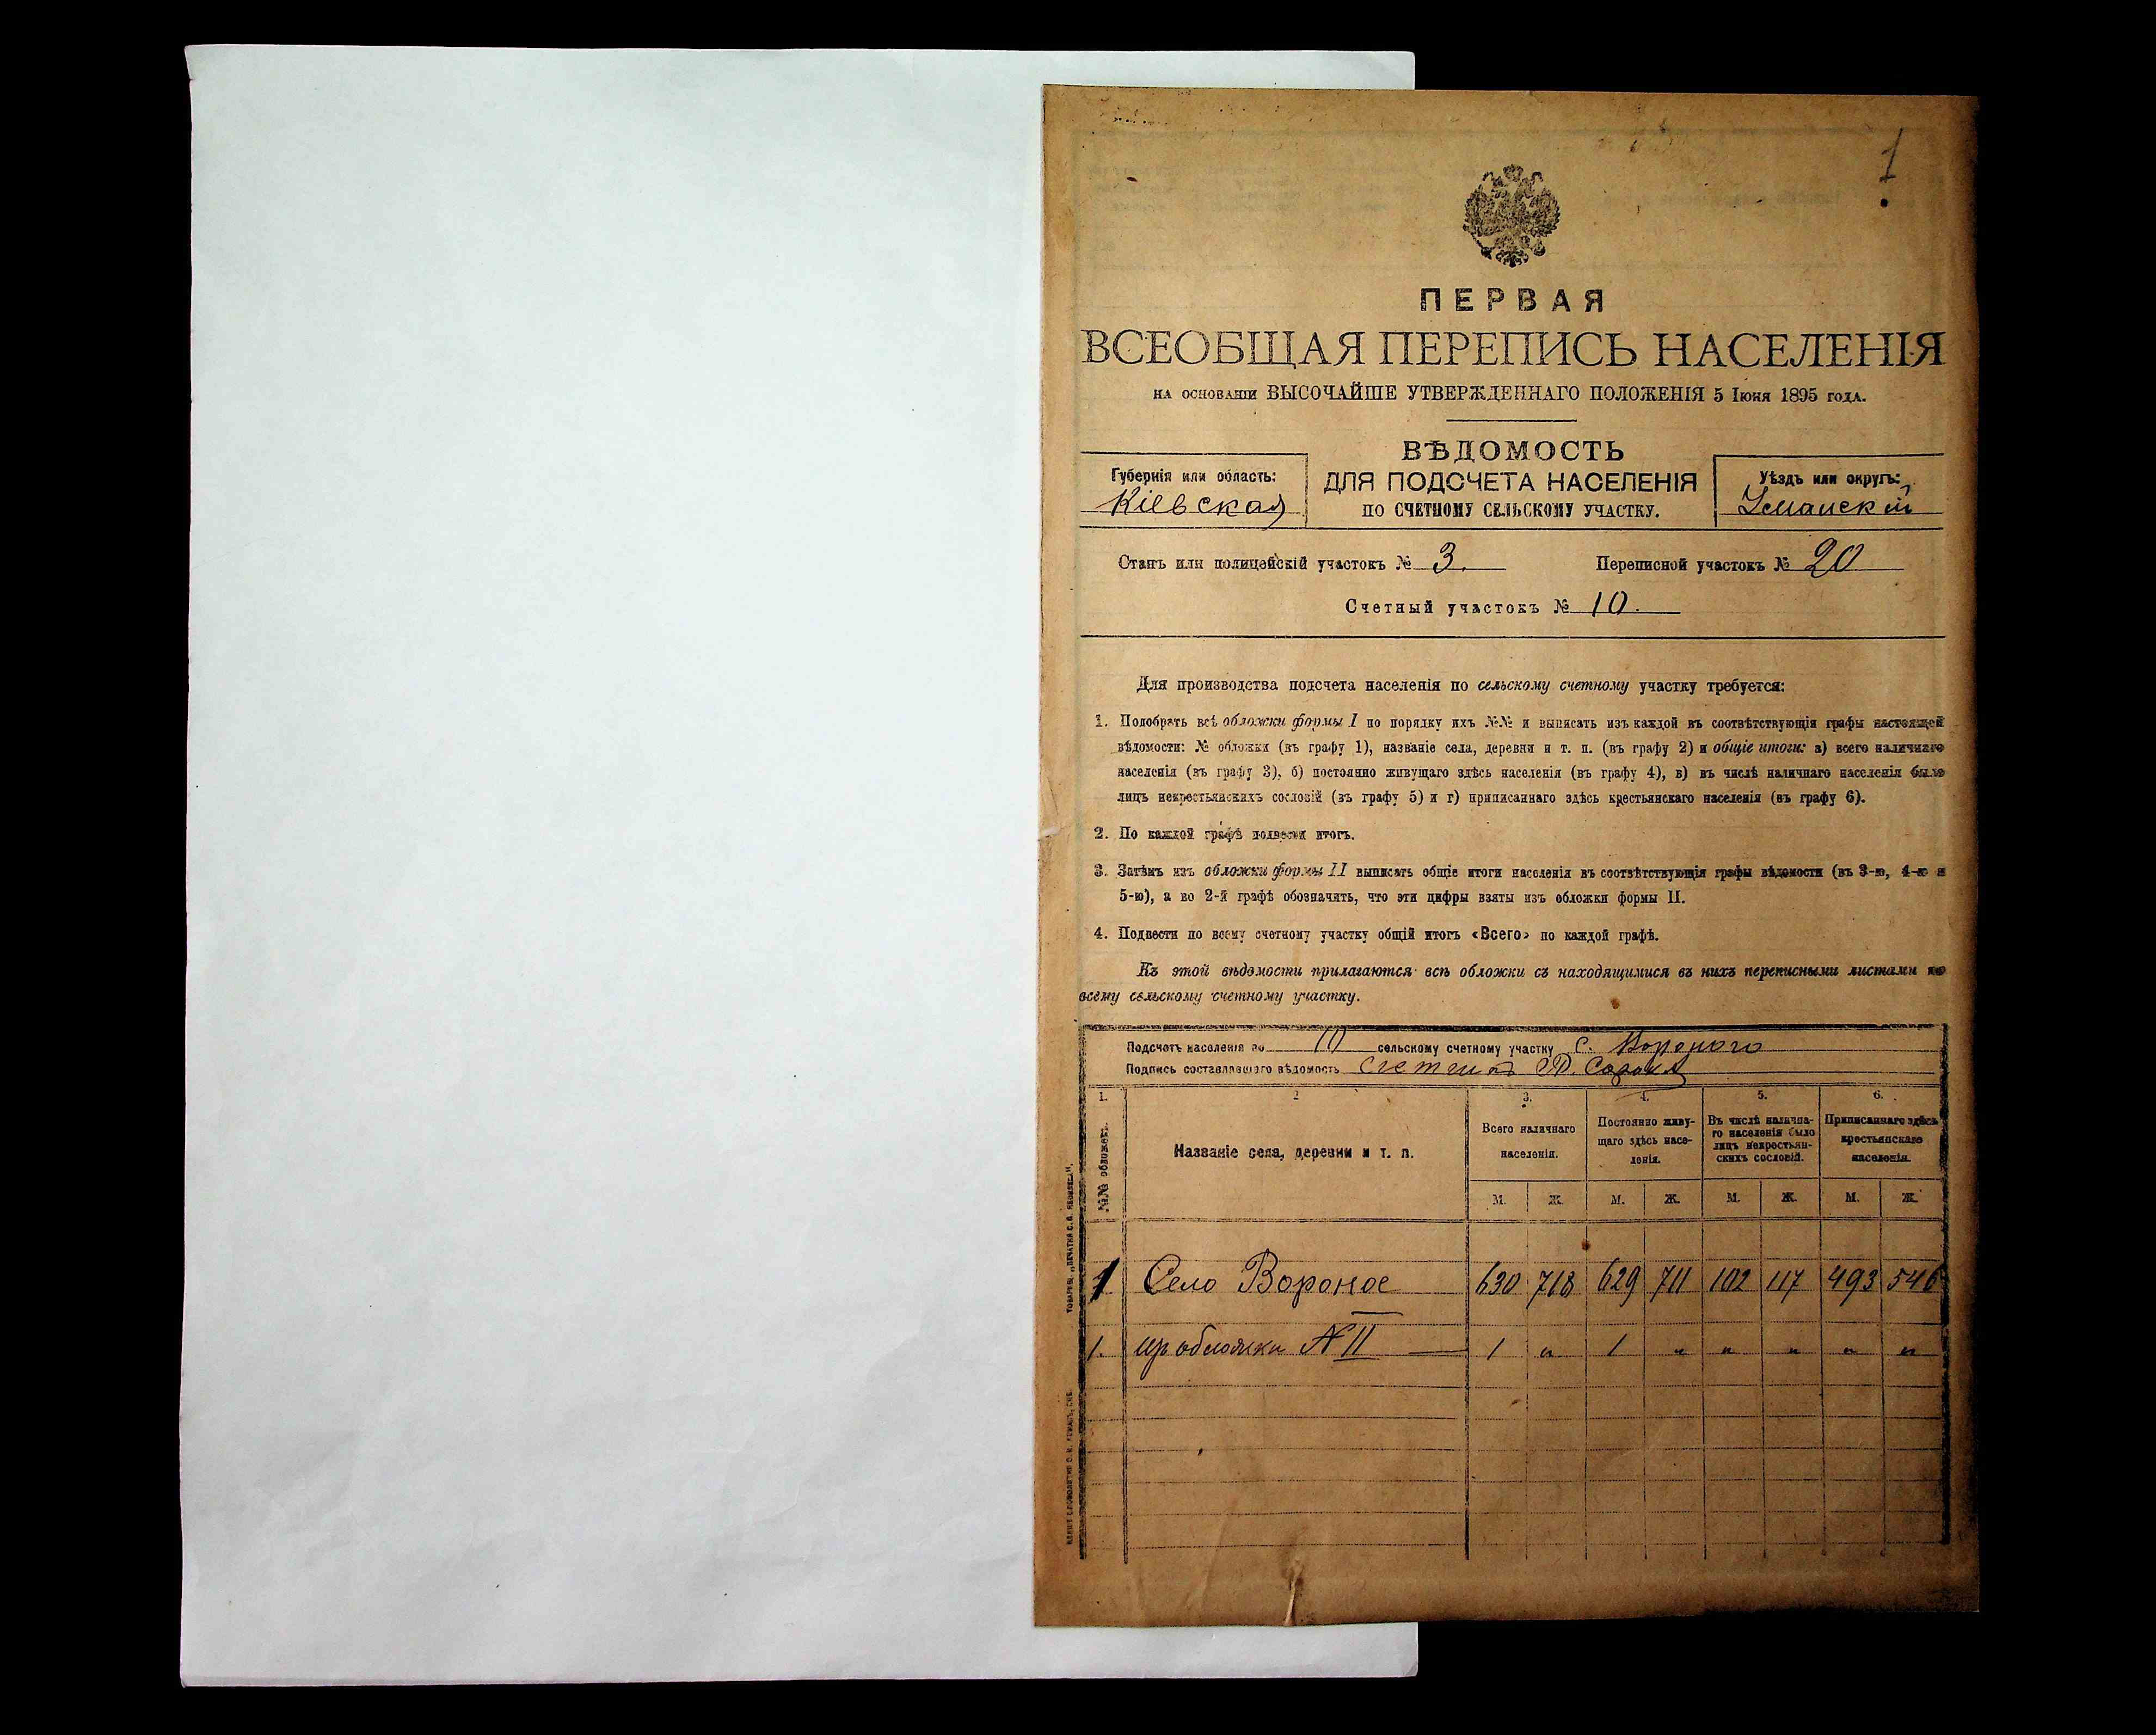 1
ПЕРВАЯ
ВСЕОБЩАЯ ПЕРЕПИСЬ НАСЕЛЕНІЯ
НА ОСНОВАНІИ ВЫСОЧАЙШЕ УТВЕРЖДЕННАГО ПОЛОЖЕНІЯ 5 Іюня 1895 ГОДА.
ВѢДОМОСТЬ
ДЛЯ ПОДСЧЕТА НАСЕЛЕНІЯ
ПО СЧЕТНОМУ СЕЛЬСКОМУ УЧАСТКУ.
Губернія или область:
Кіевская
Уѣздъ или округъ:
Уманскій
Станъ или полицейскій участокъ № 3. Переписной участокъ № 20
Счетный участокъ № 10.
Для производства подсчета населенія по сельскому счетному участку требуется:
1. Подобрать всѣ обложки формы I по порядку ихъ №№ и выписать изъ каждой въ соотвѣтствующія графы настоящей
вѣдомости: № обложки (въ графу 1), названіе села, деревни и т. п. (въ графу 2) и общіе итоги: а) всего наличнаго
населенія (въ графу 3), б) постоянно живущаго здѣсь населенія (въ графу 4), в) въ числѣ наличнаго населенія было
лицъ некрестьянскихъ сословій (въ графу 5) и г) приписаннаго здѣсь крестьянскаго населенія (въ графу 6).
2. По каждой графѣ подвести итогъ.
3. Затѣмъ изъ обложки формы II выписать общіе итоги населенія въ соотвѣтствующія графы вѣдомости (въ 3-ю, 4-ю и
5-ю), а во 2-й графѣ обозначить, что эти цифры взяты изъ обложки формы II.
4. Подвести по всему счетному участку общій итогъ «Всего» по каждой графѣ.
Къ этой вѣдомости прилагаются всѣ обложки съ находящимися въ нихъ переписными листами по
всему сельскому счетному участку.
Подсчетъ населенія по 10 сельскому счетному участку с. Вороного
Подпись составлявшаго вѣдомость Счетчикъ
1. 2 3. 4. 5. 6.
№№ обложекъ.
Названіе села, деревни и т. п.
Всего наличнаго населенія.
Постоянно живущаго здѣсь населенія.
Въ числѣ наличнаго населенія было лицъ некрестьянскихъ сословій.
Приписаннаго здѣсь крестьянскаго населенія.
М. Ж. М. Ж. М. Ж. М. Ж.
1 Село Вороное 630 718 629 711 102 117 493 546
1. изъ обложки № II 1 " 1 " " " " "